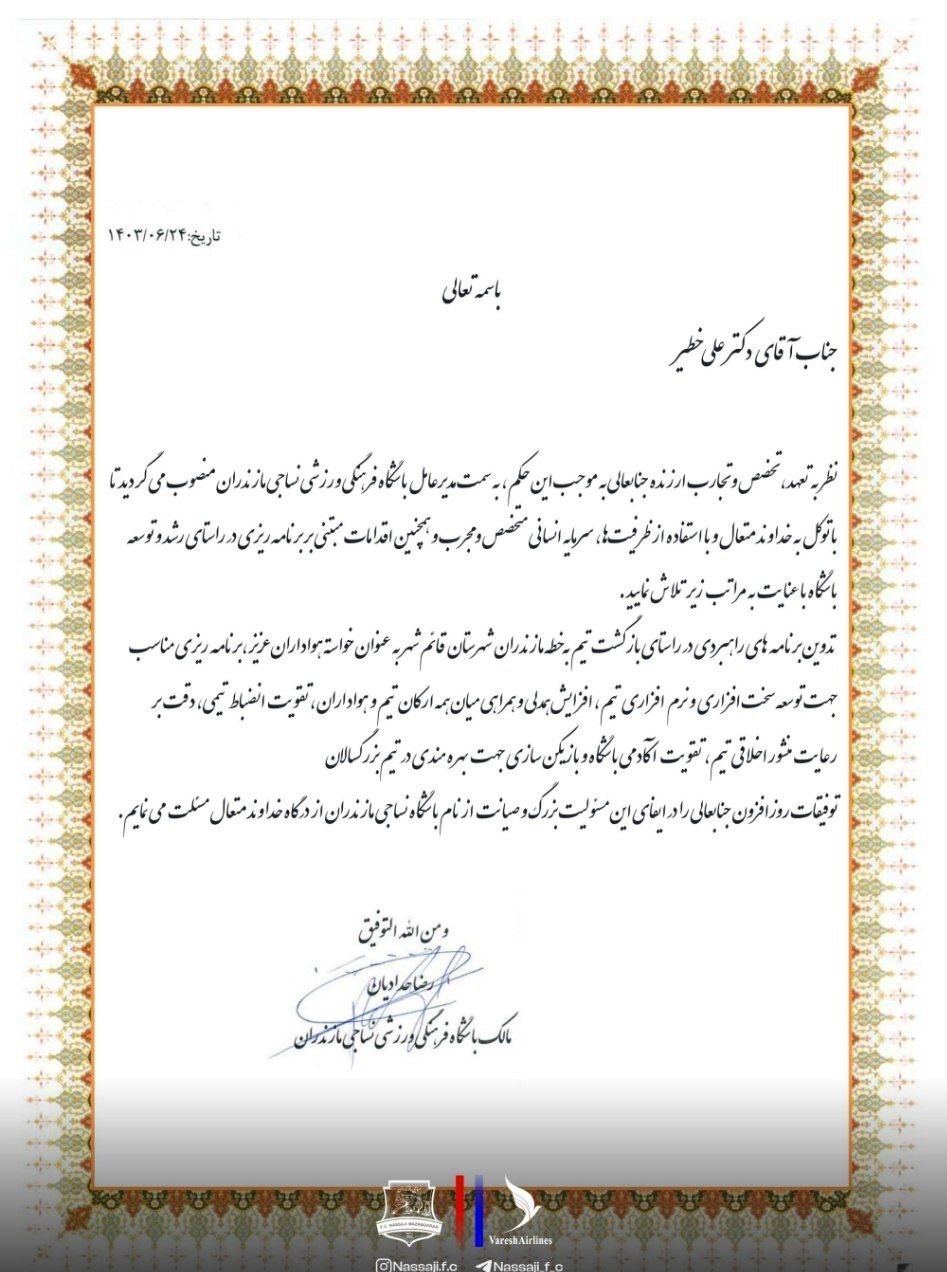 تاریخ:۱۴۰۳/۰۶/۲۴
باسمه تعالی
جناب آقای دکتر علی خطیر
نظر به تعهد، تخصص و تجارب ارزنده جنابعالی به موجب این حکم، به سمت مدیرعامل باشگاه فرهنگی ورزشی نساجی مازندران منصوب می گردید تا
با توکل به خداوند متعال و با استفاده از ظرفیت ها، سرمایه انسانی متخصص و مجرب و همچنین اقدامات مبتنی بر برنامه ریزی در راستای رشد و توسعه
باشگاه با عنایت به مراتب زیر تلاش نمایید.
تدوین برنامه های راهبردی در راستای بازگشت تیم به خطه مازندران شهرستان قائم شهر به عنوان خواسته هواداران عزیز، برنامه ریزی مناسب
جهت توسعه سخت افزاری و نرم افزاری تیم، افزایش همدلی و همراهی میان همه ارکان تیم و هواداران، تقویت انضباط تیمی، دقت بر
رعایت منشور اخلاقی تیم، تقویت آکادمی باشگاه و بازیکن سازی جهت بهره مندی در تیم بزرگسالان
توفیقات روز افزون جنابعالی را در ایفای این مسئولیت بزرگ و صیانت از نام باشگاه نساجی مازندران از درگاه خداوند متعال مسئلت می نمایم.
و من الله التوفیق
رضا حدادیان
مالک باشگاه فرهنگی ورزشی نساجی مازندران
F.C. NASSAJI MAZANDARAN
VareshAirlines
Nassaji.f.c
Nassaji_f_c